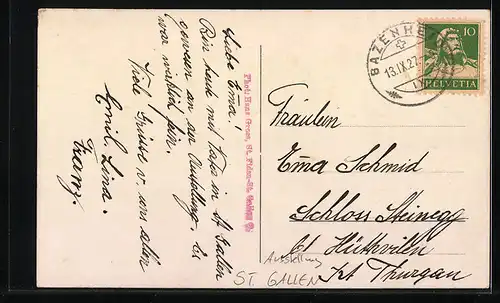 Liebe Ema!
Bin heute mit Papa in St. Gallen
gewesen an der Austellung. Es
war wirklich fein.
Viele Grüsse v. uns allen
Emil, Lina.
Franz.
Phot: Hans Gross, St. Fiden-St. Gallen
BAZENH
13.IX.27
10
HELVETIA
Fräulein
Ema Schmid
Schloss Steinegg
b/ Hüttwilen
Kt Thurgau
Austellung
ST. GALLEN